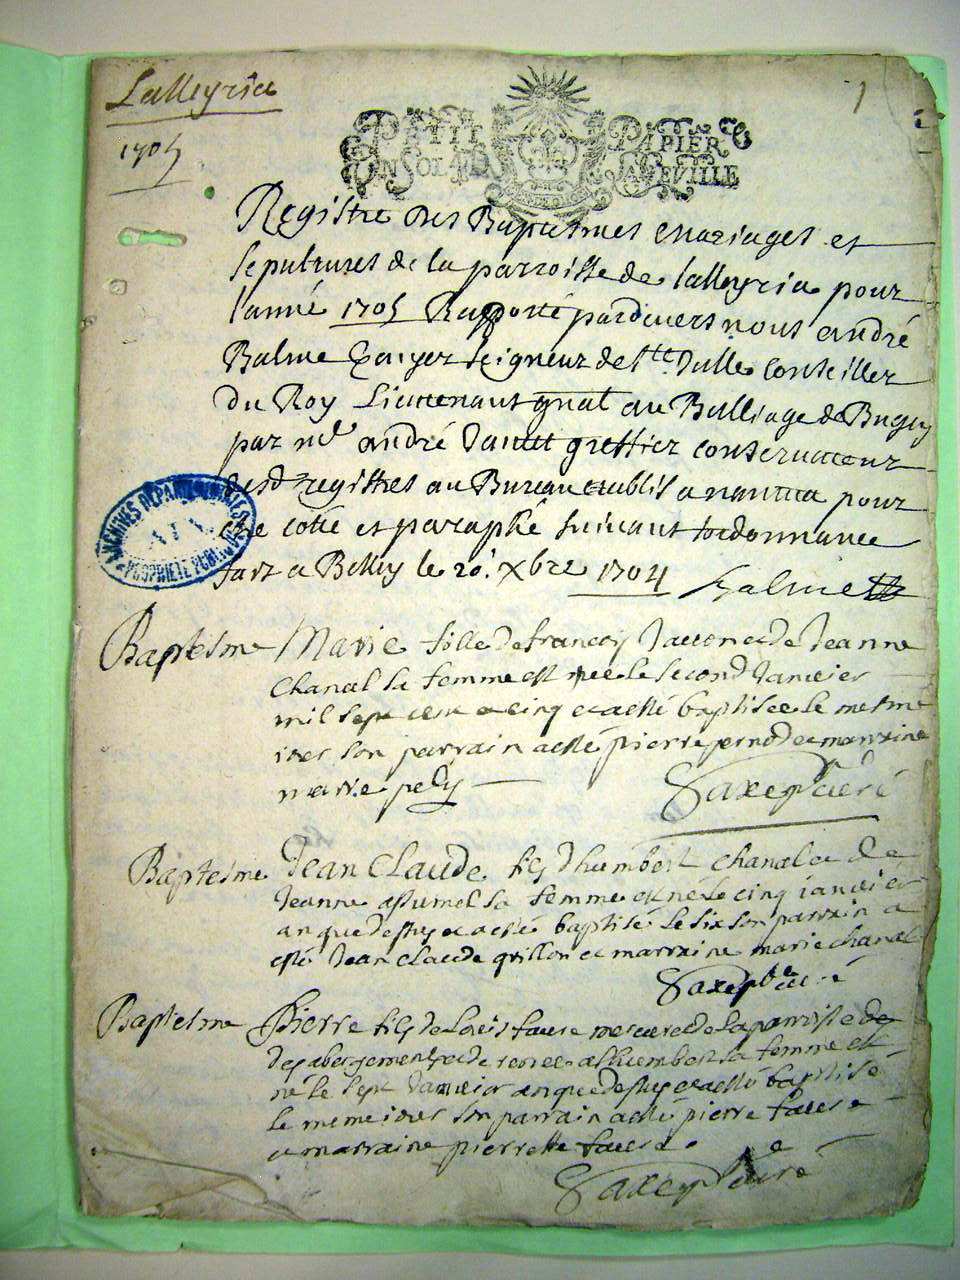 Lalleyria
1
1705
PETIT PAPIER
UN SOL 4 D LA FEVILLE
Registre des Baptesmes mariages et
sepultures de la parroisse de lalleyria pour
lanné 1705 Rapporté pardevers nous andré
Balme Escuyer seigneur de Ste. Julle conseiller
du Roy Lieutenant gnal au Balliage de Bugey
par me andré Jantet greffier conservateur
desd registres au Bureau establis a nantua pour
estre cotté et paraphé suivant lordonnance
fait a Belley le 20. Xbre 1704 Balme
ARCHIVES DEPARTEMENTALES
AIN
PROPRIETE PUBLIQUE
Baptesme Marie fille de francois et de Jeanne
Chanal sa femme est nee le second Janvier
mil sept cent et cinq et a esté baptisee le mesme
iour son parrain a esté pierre et marraine
marie
Saxe curé
Baptesme Jean Claude fils dhumbert chanal et de
Jeanne assumel sa femme est né le cinq ianvier
an que dessus et a esté baptisé le six son parrain a
esté Jean claude et marraine marie chanal
Saxe curé
Baptesme Pierre fils de Louis faure de la parroisse de
et de assumbert sa femme est
né le sept Janvier an que dessus et a esté baptisé
le meme iour son parrain a esté pierre faure
et marraine pierrette faure
Saxe curé